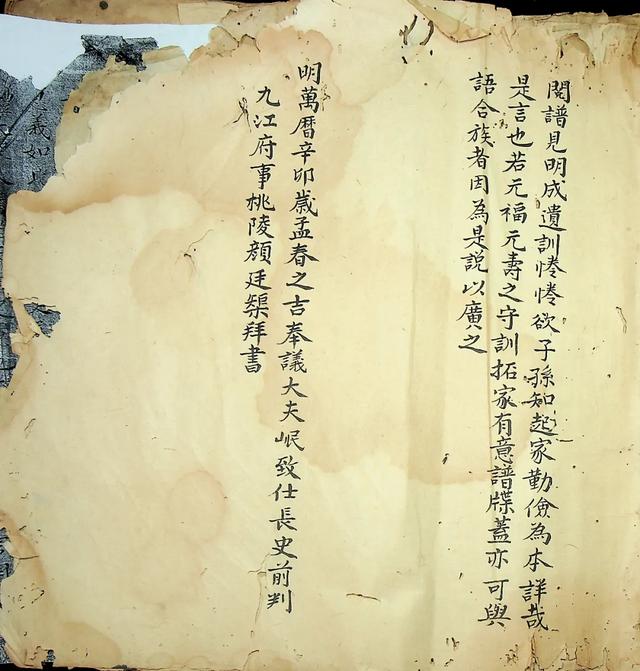 閱譜見明成遺訓惓惓欲子孫知起家勤儉為本詳哉
是言也若元福元壽之守訓拓家有意譜牒蓋亦可與
語合族者因為是説以廣之
明萬曆辛卯歲孟春之吉奉議大夫岷致仕長史前判
九江府事桃陵顏廷榘拜書
義如